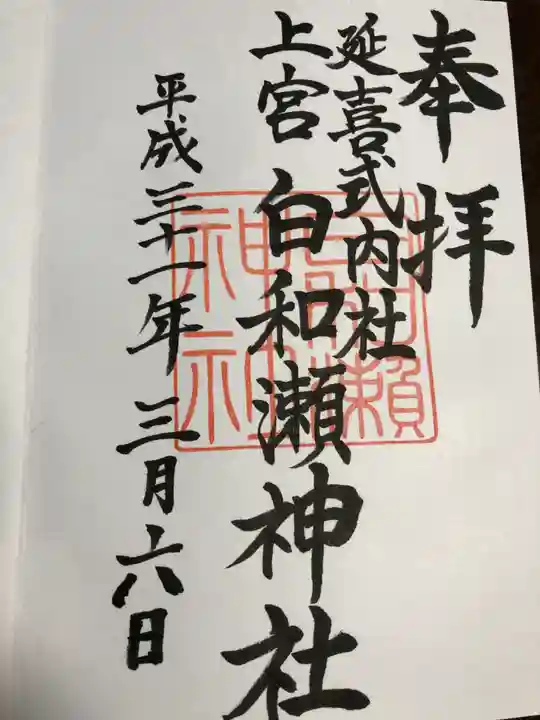 奉拝
延喜式内社
上宮 白和瀬神社
平成三十一年 三月六日
白和瀬神社